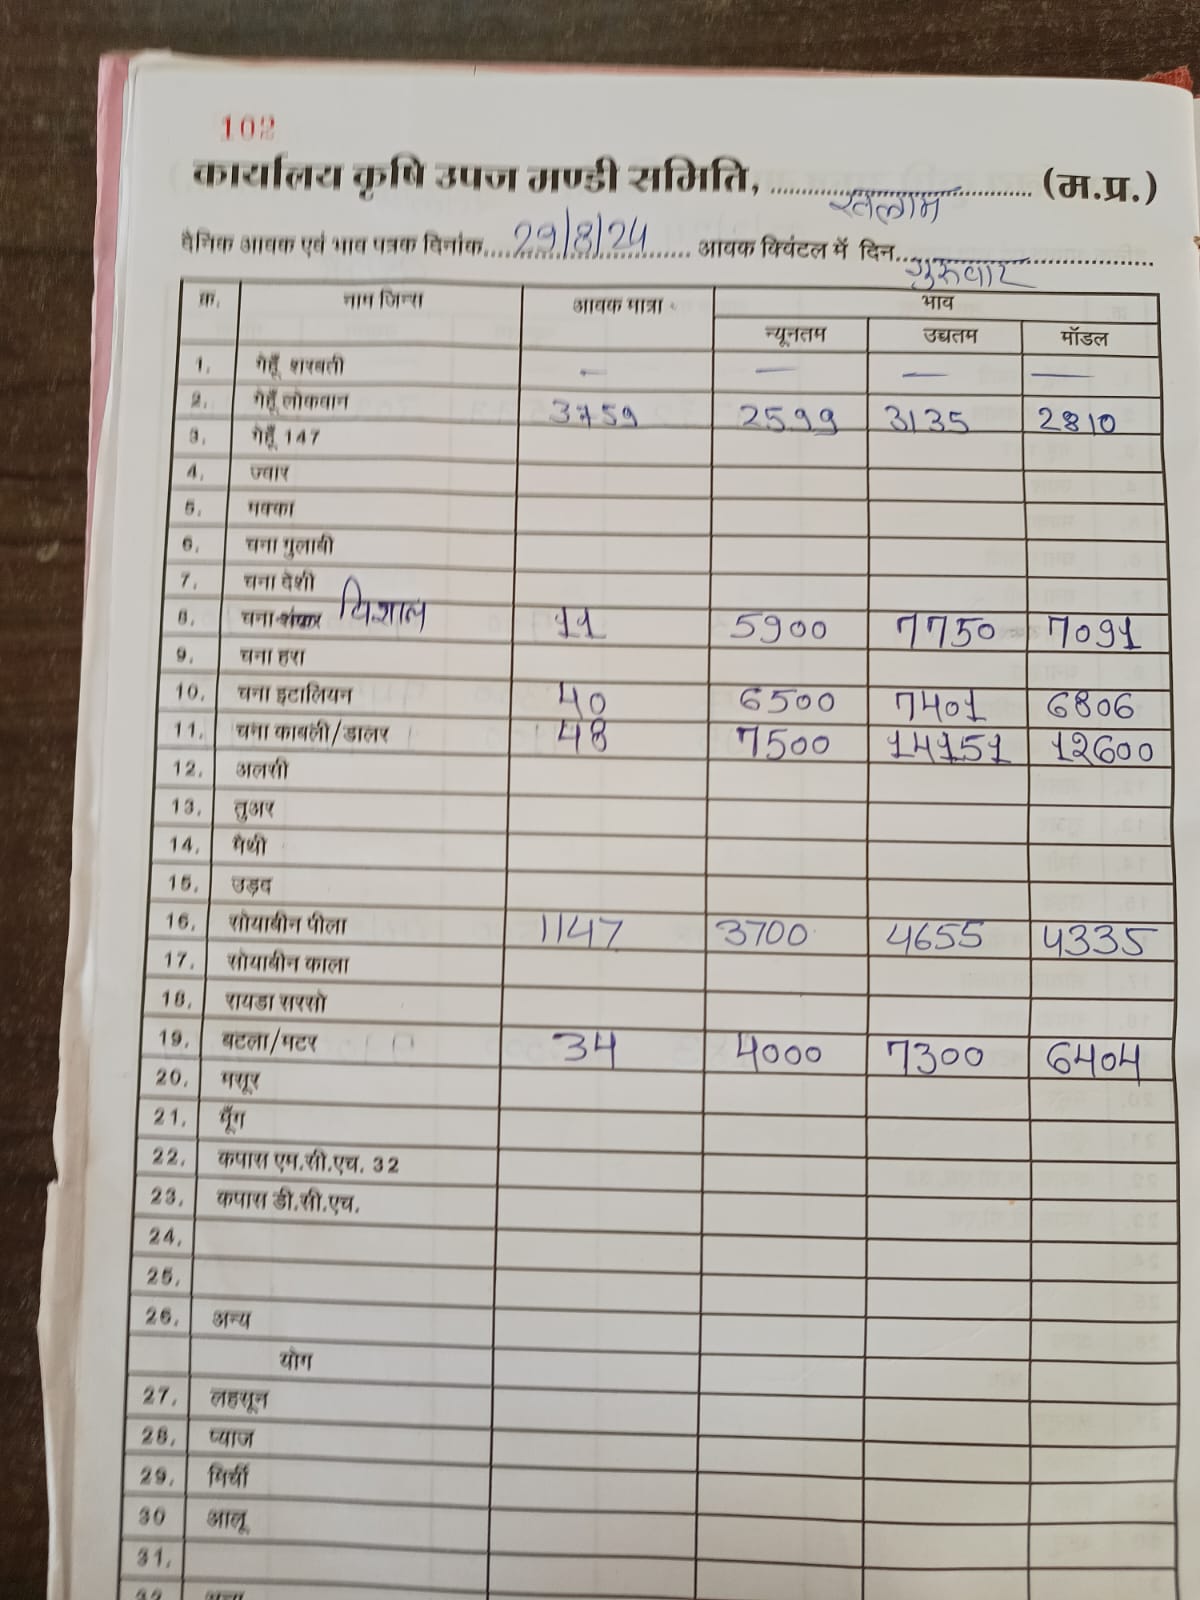 102
कार्यालय कृषि उपज मण्डी समिति, रतलाम (म.प्र.)
दैनिक आवक एवं भाव पत्रक दिनांक 29/8/24 आवक क्विंटल में दिन गुरुवार
क्र. नाम जिन्स आवक मात्रा भाव
न्यूनतम उच्चतम मॉडल
1. गेहूँ शरबती — — — —
2. गेहूँ लोकवान 3759 2599 3135 2810
3. गेहूँ 147
4. ज्वार
5. मक्का
6. चना गुलाबी
7. चना देशी
8. चना विशाल 11 5900 7750 7091
9. चना हरा
10. चना इटालियन 40 6500 7401 6806
11. चना काबली/डालर 48 7500 14151 12600
12. अलसी
13. तुअर
14. मैथी
15. उड़द
16. सोयाबीन पीला 1147 3700 4655 4335
17. सोयाबीन काला
18. रायडा सरसो
19. बटला/मटर 34 4000 7300 6404
20. मसूर
21. मूँग
22. कपास एम.सी.एच. 32
23. कपास डी.सी.एच.
24.
25.
26. अन्य
योग
27. लहसून
28. प्याज
29. मिर्ची
30 आलू
31.
32